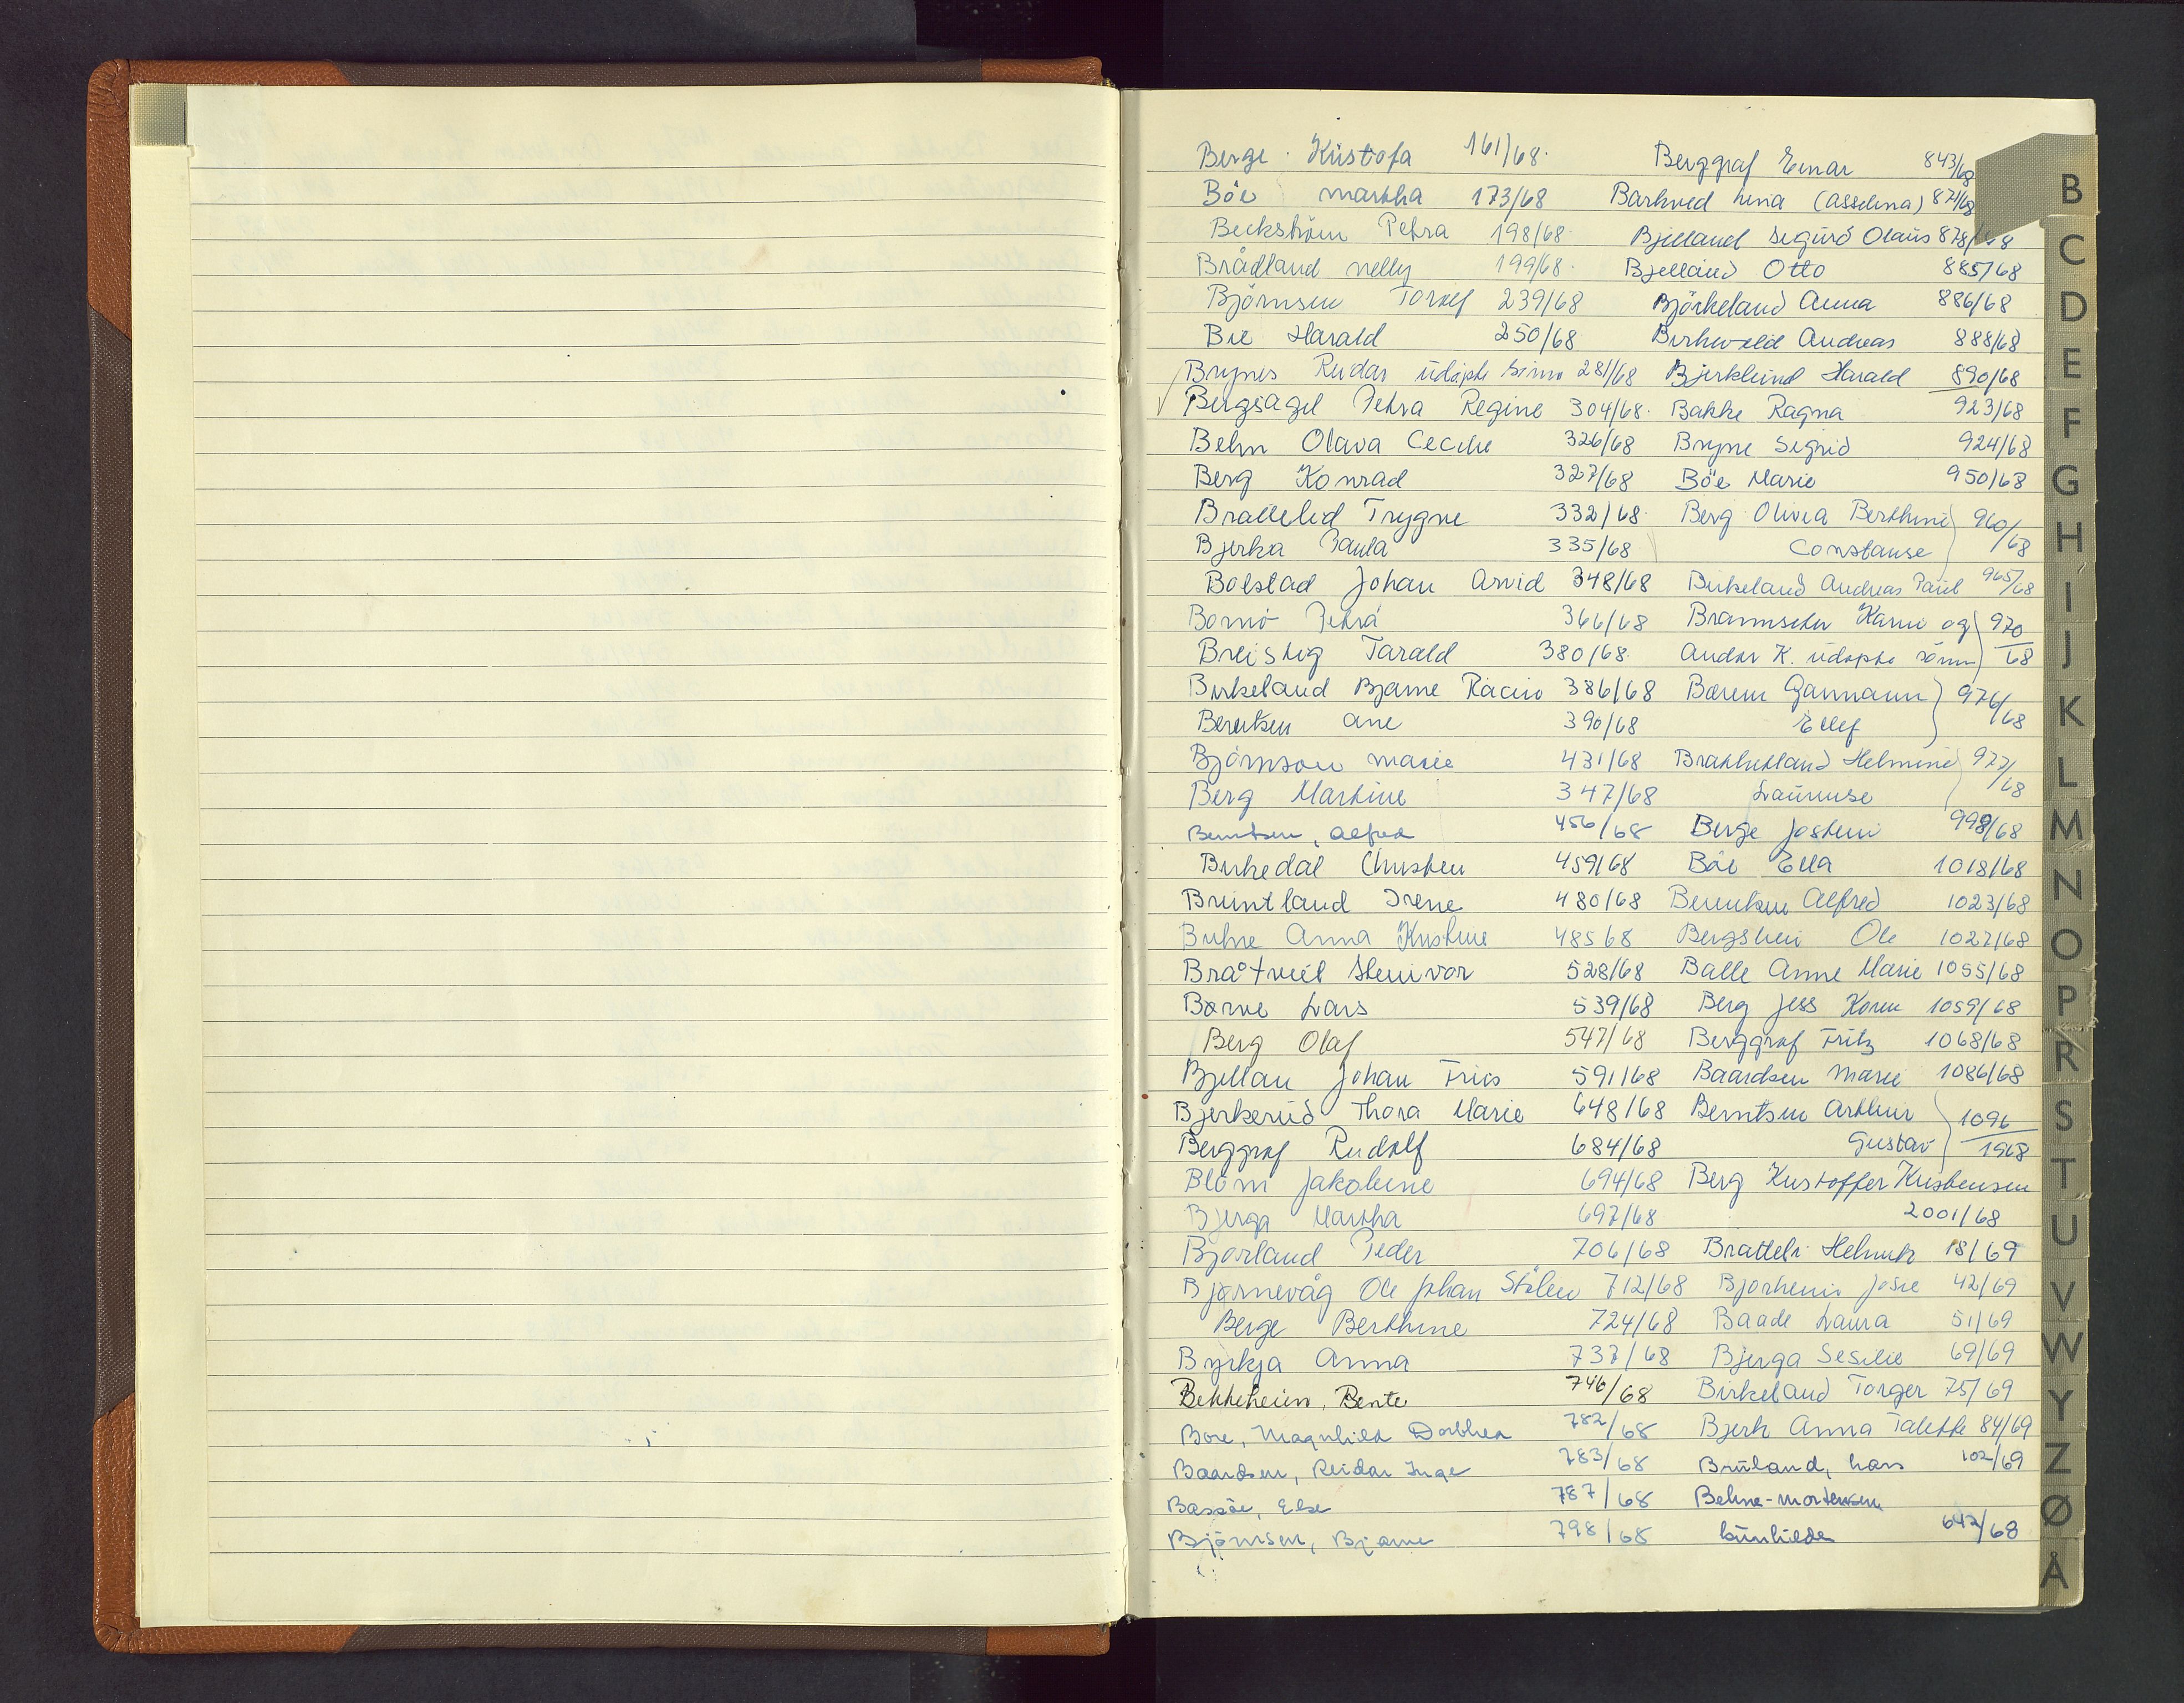 Berge Kristofa 161/68.
Böe Martha 173/68
Beckström Petra 198/68
Brådland Nelly 199/68.
Björnsen Torolf 239/68
Bie Harald 250/68
Brynes Reidar udöpte 281/68
Bergsagel Petra Regine 304/68.
Behn Olava Cecilie 326/68
Berg Konrad 327/68
Brattelid Trygve 332/68.
Bjerka Paula 335/68
Bolstad Johan Arvid 348/68
Bornö Petra 366/68
Breistig Tarald 380/68.
Birkeland Bjarne 386/68
Berentsen Ane 390/68
Björnson Marie 431/68
Berg Martine 347/68
Berntsen, Alfred 456/68
Birkedal Christen 459/68
Bruntland Irene 480/68
Anna Kristine 485 68
Bråtveit Steinvor 528/68
Børve Lars 539/68
Berg Olaf 547/68
Johan 591/68
Bjerkerud Thora Marie 648/68
Berggraf Rudolf 684/68
Blom Jakobine 694/68
Bjerga Martha 697/68
Bjorland Peder 706/68
Bjørnevåg Ole Johan Stölen 712/68
Berge Berthine 724/68
Byrkja Anna 737/68
Bekkeheien, Bente 746/68
Bore, Magnhild Dorthea 782/68
Baardsen, Reidar Inge 783/68
Bassöe, Else 787/68
Björnsen, Bjarne 798/68
Berggraf Einar 843/68
Barkved Lina (Asselina) 871/68
Bjelland Sigurd Olaus 878/68
Bjelland Otto 885/68
Björkeland Anna 886/68
Andreas 888/68
Bjerklund Harald 890/68
Bakke Ragna 923/68
Bryne Sigrid 924/68
Böe Marie 950/68
Berg Olivia Berthine 960/68
Constanse
Birkeland Andreas Paul 965/68
Karin og 970/68
Andor K. udöpte sönn
Bærem Gannann 976/68
Ellef
Helmine 977/68
Laurense
Berge Jostein 998/68
Böe Ella 1018/68
Berentsen Alfred 1023/68
Bergstein Ole 1027/68
Balle Anne Marie 1055/68
Berg Jess Koren 1059/68
Berggraf Fritz 1068/68
Baardsen Marie 1086/68
Berntsen Arthur 1096/1968
Gustav
Berg Kristoffer Kristensen
2001/68
Bratteli Helmik 18/69
Bjorheim Josie 42/69
Baade Laura 51/69
Bjerga Sesilie 69/69
Birkeland Torger 75/69
Bjerk Anna Talette 84/69
Bruland, Hans 102/69
Behne-Mortensen
Gunhilde 642/68
B
C
D
E
F
G
H
I
J
K
L
M
N
O
P
R
S
T
U
V
W
Y
Z
Ø
Å